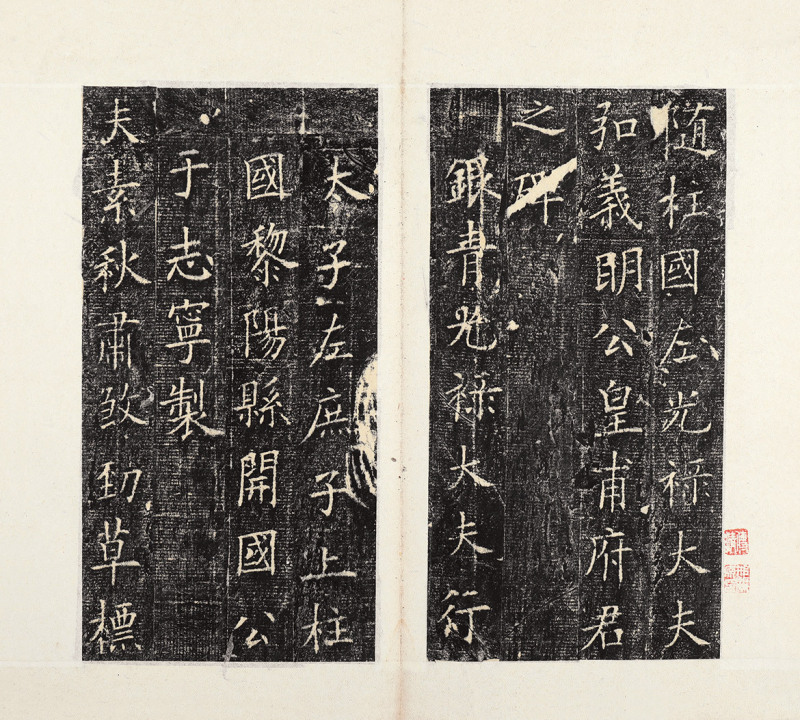 随柱國左光祿大夫
弘義明公皇甫府君
之碑
銀青光祿大夫行
太子左庶子上柱
國黎陽縣開國公
于志寧製
夫素秋肅致勁草標